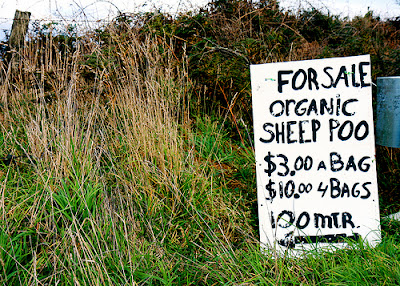 FOR SALE
ORGANIC
SHEEP POO
$3.00 A BAG
$10.00 4 BAGS
100 MTR.